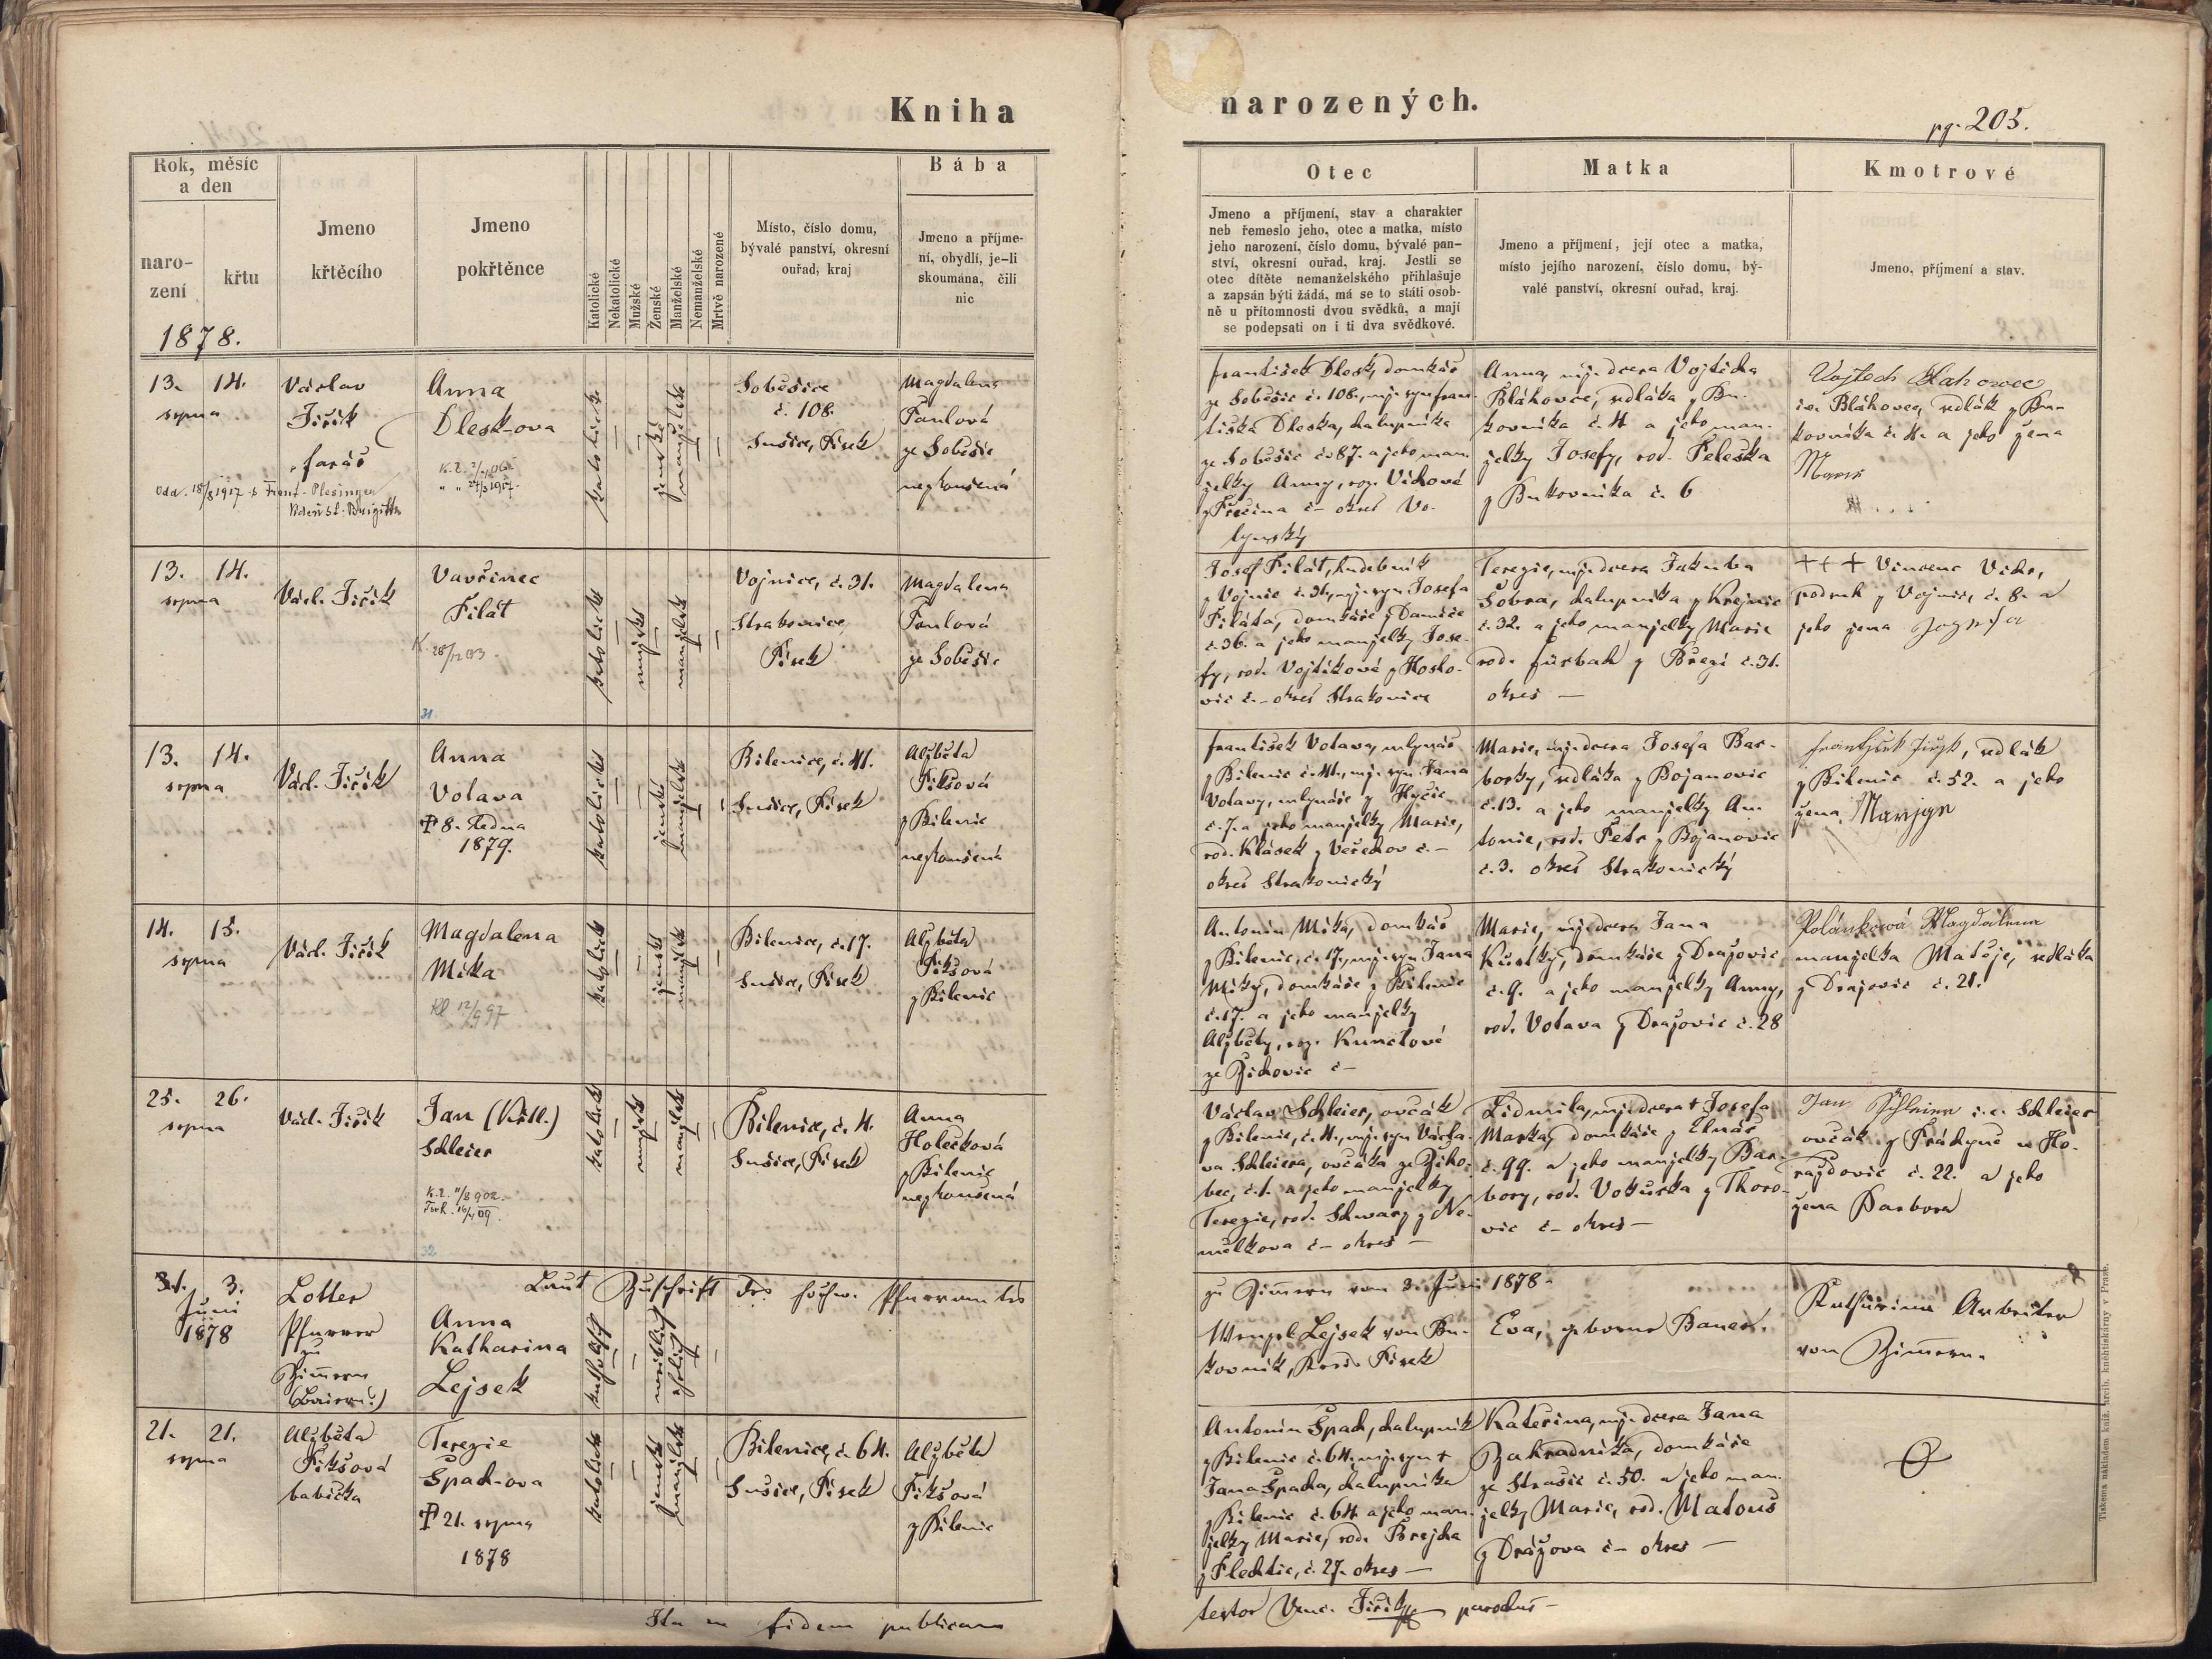 Kniha
narozených.
pg. 205.
Rok, měsíc
a den
naro-
zení
křtu
Jmeno
křtěcího
Jmeno
pokřtěnce
Katolické
Nekatolické
Mužské
Ženské
Manželské
Nemanželské
Mrtvě narozené
Místo, číslo domu,
bývalé panství, okresní
ouřad, kraj
Bába
Jmeno a příjme-
ní, obydlí, je-li
skoumána, čili
nic
Otec
Jmeno a příjmení, stav a charakter
neb řemeslo jeho, otec a matka, místo
jeho narození, číslo domu, bývalé pan-
ství, okresní ouřad, kraj. Jestli se
otec dítěte nemanželského přihlašuje
a zapsán býti žádá, má se to státi osob-
ně u přítomnosti dvou svědků, a mají
se podepsati on i ti dva svědkové.
Matka
Jmeno a příjmení, její otec a matka,
místo jejího narození, číslo domu, bý-
valé panství, okresní ouřad, kraj.
Kmotrové
Jmeno, příjmení a stav.
1878.
13. 14.
srpna
Václav
Jiřík
farář
Anna
Dlesk-ova
katolické
ženské
manželské
Soběšice
č. 108.
Sušice, Písek
Magdalena
Paulová
ze Soběšic
nezkoušená
František Dlesk, domkář
ze Soběšic č. 108., mž. syn Fran-
tiška Dleska, chalupníka
ze Soběšic č. 87. a jeho man-
želky Anny, roz. Víchové
z Přečína č – okres Vo-
lynský
Anna, mž. dcera Vojtěcha
Bláhovce, sedláka z Bu-
kovníka č. 4 a jeho man-
želky Josefy, rod. Peleška
z Bukovníka č. 6
Vojtech Blahovec
i.e. Bláhovec, sedlák z Bu-
kovníka č. 4. a jeho žena
Marie
13. 14.
srpna
Václ. Jiřík
Vavřinec
Pilát
K. 28/12 03.
31
katolické
mužské
manželské
Vojnice, č. 31.
Strakonice
Písek
Magdalena
Paulová
ze Soběšic
Josef Pilát, hudebník
z Vojnic č. 31., mž. syn Josefa
Piláta, domkáře z Damíče
č. 36. a jeho manželky Jose-
fy, rod. Vojtíkové z Hoslo-
vic č. – okres Strakonice
Terezie, mž. dcera Jakuba
Sovra, chalupníka z Krejnic
č. 32. a jeho manželky Marie
rod. Fürbach z Březí č. 31.
okres —
+++ Vincenc Vichr,
podruh z Vojnic, č. 8. a
jeho žena Jozefa
13. 14.
srpna
Václ. Jiřík
Anna
Votava
✝ 8. ledna
1879.
katolické
ženské
manželské
Bílenice, č. 41.
Sušice, Písek
Alžběta
Pikšová
z Bílenic
nezkoušená
František Votava, mlynář
z Bílenic č. 41., mž. syn Jana
Votavy, mlynáře z Hyčic
č. 7. a jeho manželky Marie,
rod. Klásek z Veřechov č. –
okres Strakonický
Marie, mž. dcera Josefa Bar-
borky, sedláka z Bojanovic
č. 13. a jeho manželky An-
tonie, rod. Petr z Bojanovic
č. 3. okres Strakonický
Frantjšek Jiřjk, sedlák
z Bílenic č. 52. a jeho
žena Marjge
14. 15.
srpna
Václ. Jiřík
Magdalena
Míka
Kl. 12/9 97
katolické
ženské
manželské
Bílenice, č. 17.
Sušice, Písek
Alžběta
Pikšová
z Bílenic
Antonín Míka, domkář
z Bílenic, č. 17., mž. syn Jana
Míky, domkáře z Bílenic
č. 17. a jeho manželky
Alžběty, roz. Kunclové
ze Žichovic č –
Marie, mž. dcera Jana
Kůrky, domkáře z Dražovic
č. 9. a jeho manželky Anny,
rod. Votava z Dražovic č. 28
Polánková Magdalena
manželka Matěje, sedláka
z Dražovic č. 21.
25. 26.
srpna
Václ. Jiřík
Jan (Křtl.)
Schleier
32
katolické
mužské
manželské
Bílenice, č. 4.
Sušice, Písek
Anna
Holečková
z Bílenic
nezkoušená
Václav Schleier, ovčák
z Bílenic, č. 4., mž. syn Václa-
va Schleiera, ovčáka ze Žiho-
bec, č. 1. a jeho manželky
Terezie, rod. Schwarz z Ne-
milkova č – okres —
Lidmila, mž. dcera + Josefa
Marka, domkáře z Elnář
č. 99. a jeho manželky Bar-
bory, rod. Vokurka z Thoro-
vic č – okres —
Jan Schleier i.e. Schleier
ovčák z Prádyně u Ho-
raždovic č. 22. a jeho
žena Barbora
31. 3.
Juni
1878
Lotter
Pfarrer
zu
Zimmern
(Baiern)
Laut Zuschrift des hochw. Pfarramtes
zu Zimmern vom 3. Juni 1878.
Anna
Katharina
Lejsek
katholisch
weiblich
ehelich
Wenzel Lejsek von Bu-
kovník, Kreis Písek
Eva, geborne Bauer.
Katharina Arbeiter
von Zimmern.
21. 21.
srpna
Alžběta
Pikšová
babička
Terezie
Špach-ova
✝ 21. srpna
1878
katolické
ženské
manželské
Bílenice, č. 64.
Sušice, Písek
Alžběta
Pikšová
z Bílenic
Antonín Špach, chalupník
z Bílenic č. 64., mž. syn +
Jana Špacha, chalupníka
z Bílenic č. 64. a jeho man-
želky Marie, rod. Brejcha
z Plechtic, č. 27. okres —
Kateřina, mž. dcera Jana
Zahradníka, domkáře
ze Strašic č. 50. a jeho man-
želky Marie, rod. Matouš
z Drážova č – okres —
Ita in fidem publicam
testor Venc. Jiřík parochus
Tiskem a nákladem kníž. arcib. knihtiskárny v Praze.